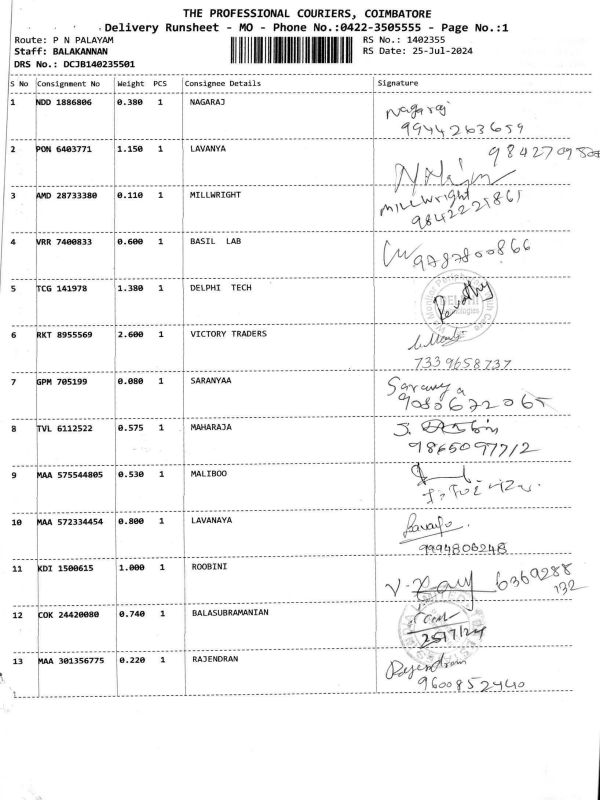 THE PROFESSIONAL COURIERS, COIMBATORE
Delivery Runsheet - MO - Phone No.:0422-3505555 - Page No.:1
Route: P N PALAYAM RS No.: 1402355
Staff: BALAKANNAN RS Date: 25-Jul-2024
DRS No.: DCJB140235501
S No Consignment No Weight PCS Consignee Details Signature
1 NDD 1886806 0.380 1 NAGARAJ Nagaraj
9944263659
2 PON 6403771 1.150 1 LAVANYA
3 AMD 28733380 0.110 1 MILLWRIGHT Millwright
9842221861
4 VRR 7400833 0.600 1 BASIL LAB 9787800866
5 TCG 141978 1.380 1 DELPHI TECH Revathy
6 RKT 8955569 2.600 1 VICTORY TRADERS
7339658737
7 GPM 705199 0.080 1 SARANYAA Saranya
9080672065
8 TVL 6112522 0.575 1 MAHARAJA
9865097712
9 MAA 575544805 0.530 1 MALIBOO
10 MAA 572334454 0.800 1 LAVANAYA
9994806248
11 KDI 1500615 1.000 1 ROOBINI 6369288
132
12 COK 24420080 0.740 1 BALASUBRAMANIAN
25/7/24
13 MAA 301356775 0.220 1 RAJENDRAN Rajendran
9600852440